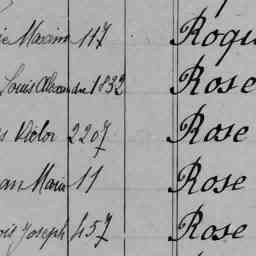 ie Maxim 117 Roqu
Louis Alexandre 1832 Rose
s Victor 2207 Rose
an Marie 11 Rose
ois Joseph 457 Rose